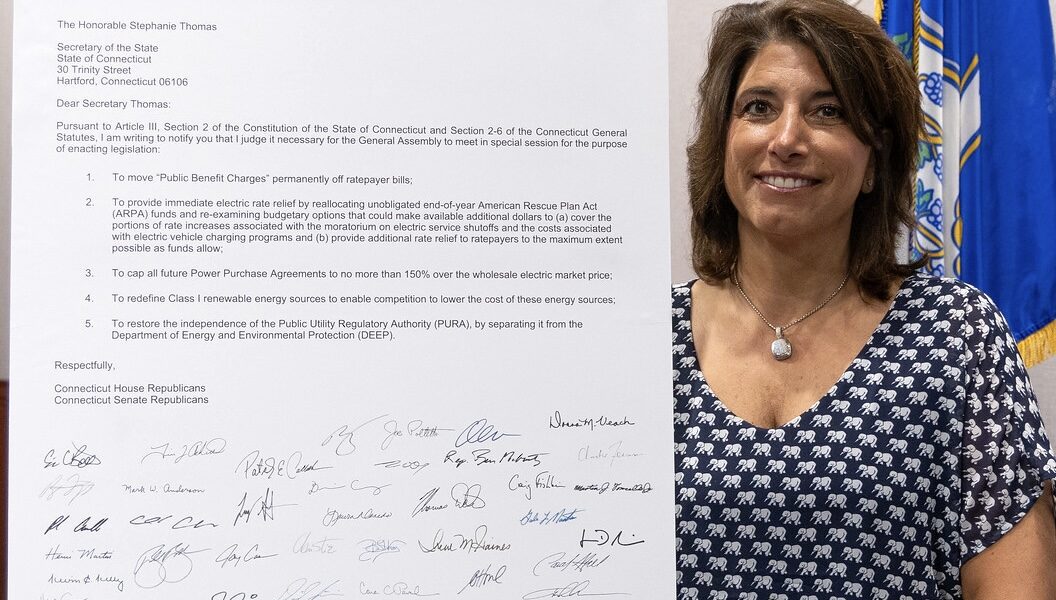 The Honorable Stephanie Thomas
Secretary of the State
State of Connecticut
30 Trinity Street
Hartford, Connecticut 06106
Dear Secretary Thomas:
Pursuant to Article III, Section 2 of the Constitution of the State of Connecticut and Section 2-6 of the Connecticut General
Statutes, I am writing to notify you that I judge it necessary for the General Assembly to meet in special session for the purpose
of enacting legislation:
1. To move “Public Benefit Charges” permanently off ratepayer bills;
2. To provide immediate electric rate relief by reallocating unobligated end-of-year American Rescue Plan Act
(ARPA) funds and re-examining budgetary options that could make available additional dollars to (a) cover the
portions of rate increases associated with the moratorium on electric service shutoffs and the costs associated
with electric vehicle charging programs and (b) provide additional rate relief to ratepayers to the maximum extent
possible as funds allow;
3. To cap all future Power Purchase Agreements to no more than 150% over the wholesale electric market price;
4. To redefine Class I renewable energy sources to enable competition to lower the cost of these energy sources;
5. To restore the independence of the Public Utility Regulatory Authority (PURA), by separating it from the
Department of Energy and Environmental Protection (DEEP).
Respectfully,
Connecticut House Republicans
Connecticut Senate Republicans
Mark W. Anderson
Craig Fishbein
Henri Martin